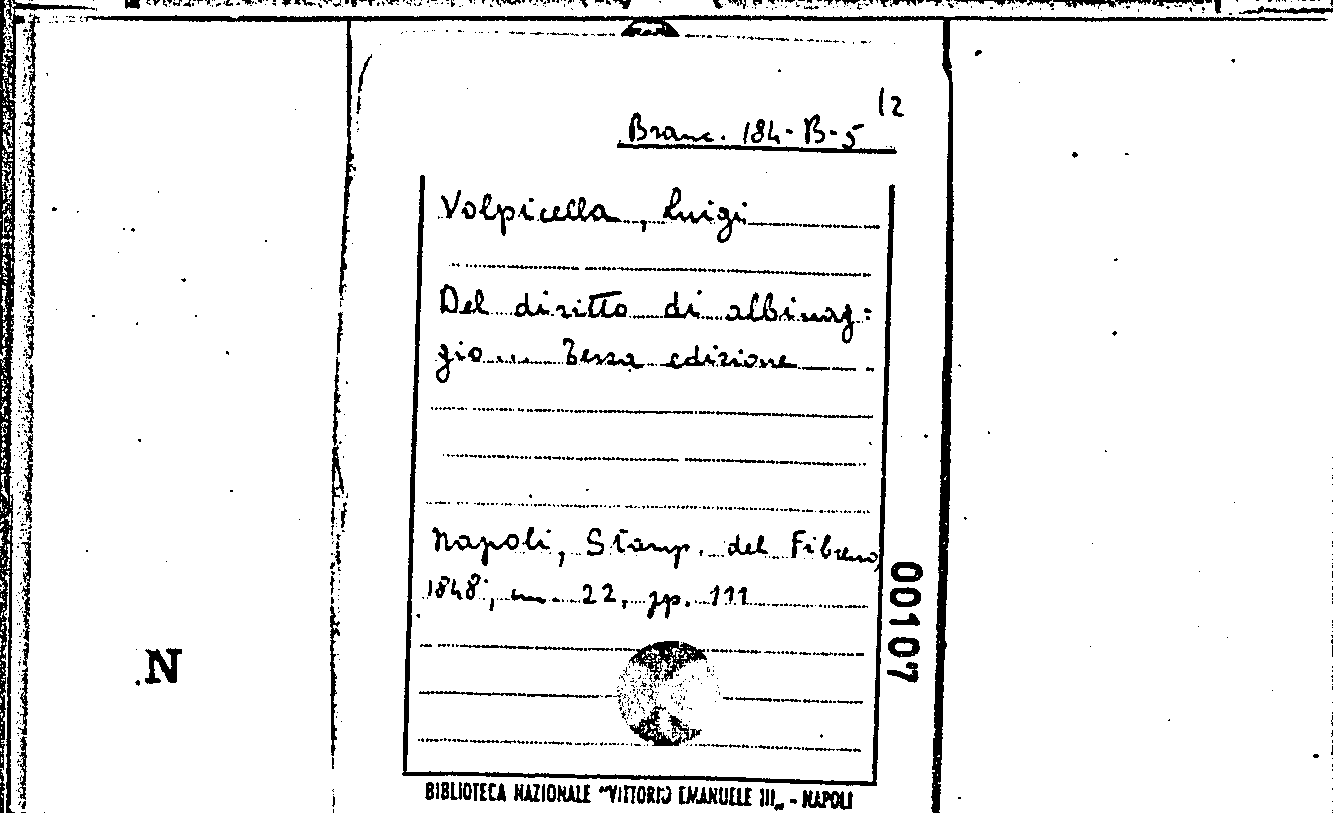 12
Branc. 184-B-5
Volpicella, Luigi
Del diritto di albinag=
gio... Terza edizione
Napoli, Stamp. del Fibreno,
1848; cm. 22, pp. 111
00107
N
BIBLIOTECA NAZIONALE "VITTORIO EMANUELE III„ - NAPOLI